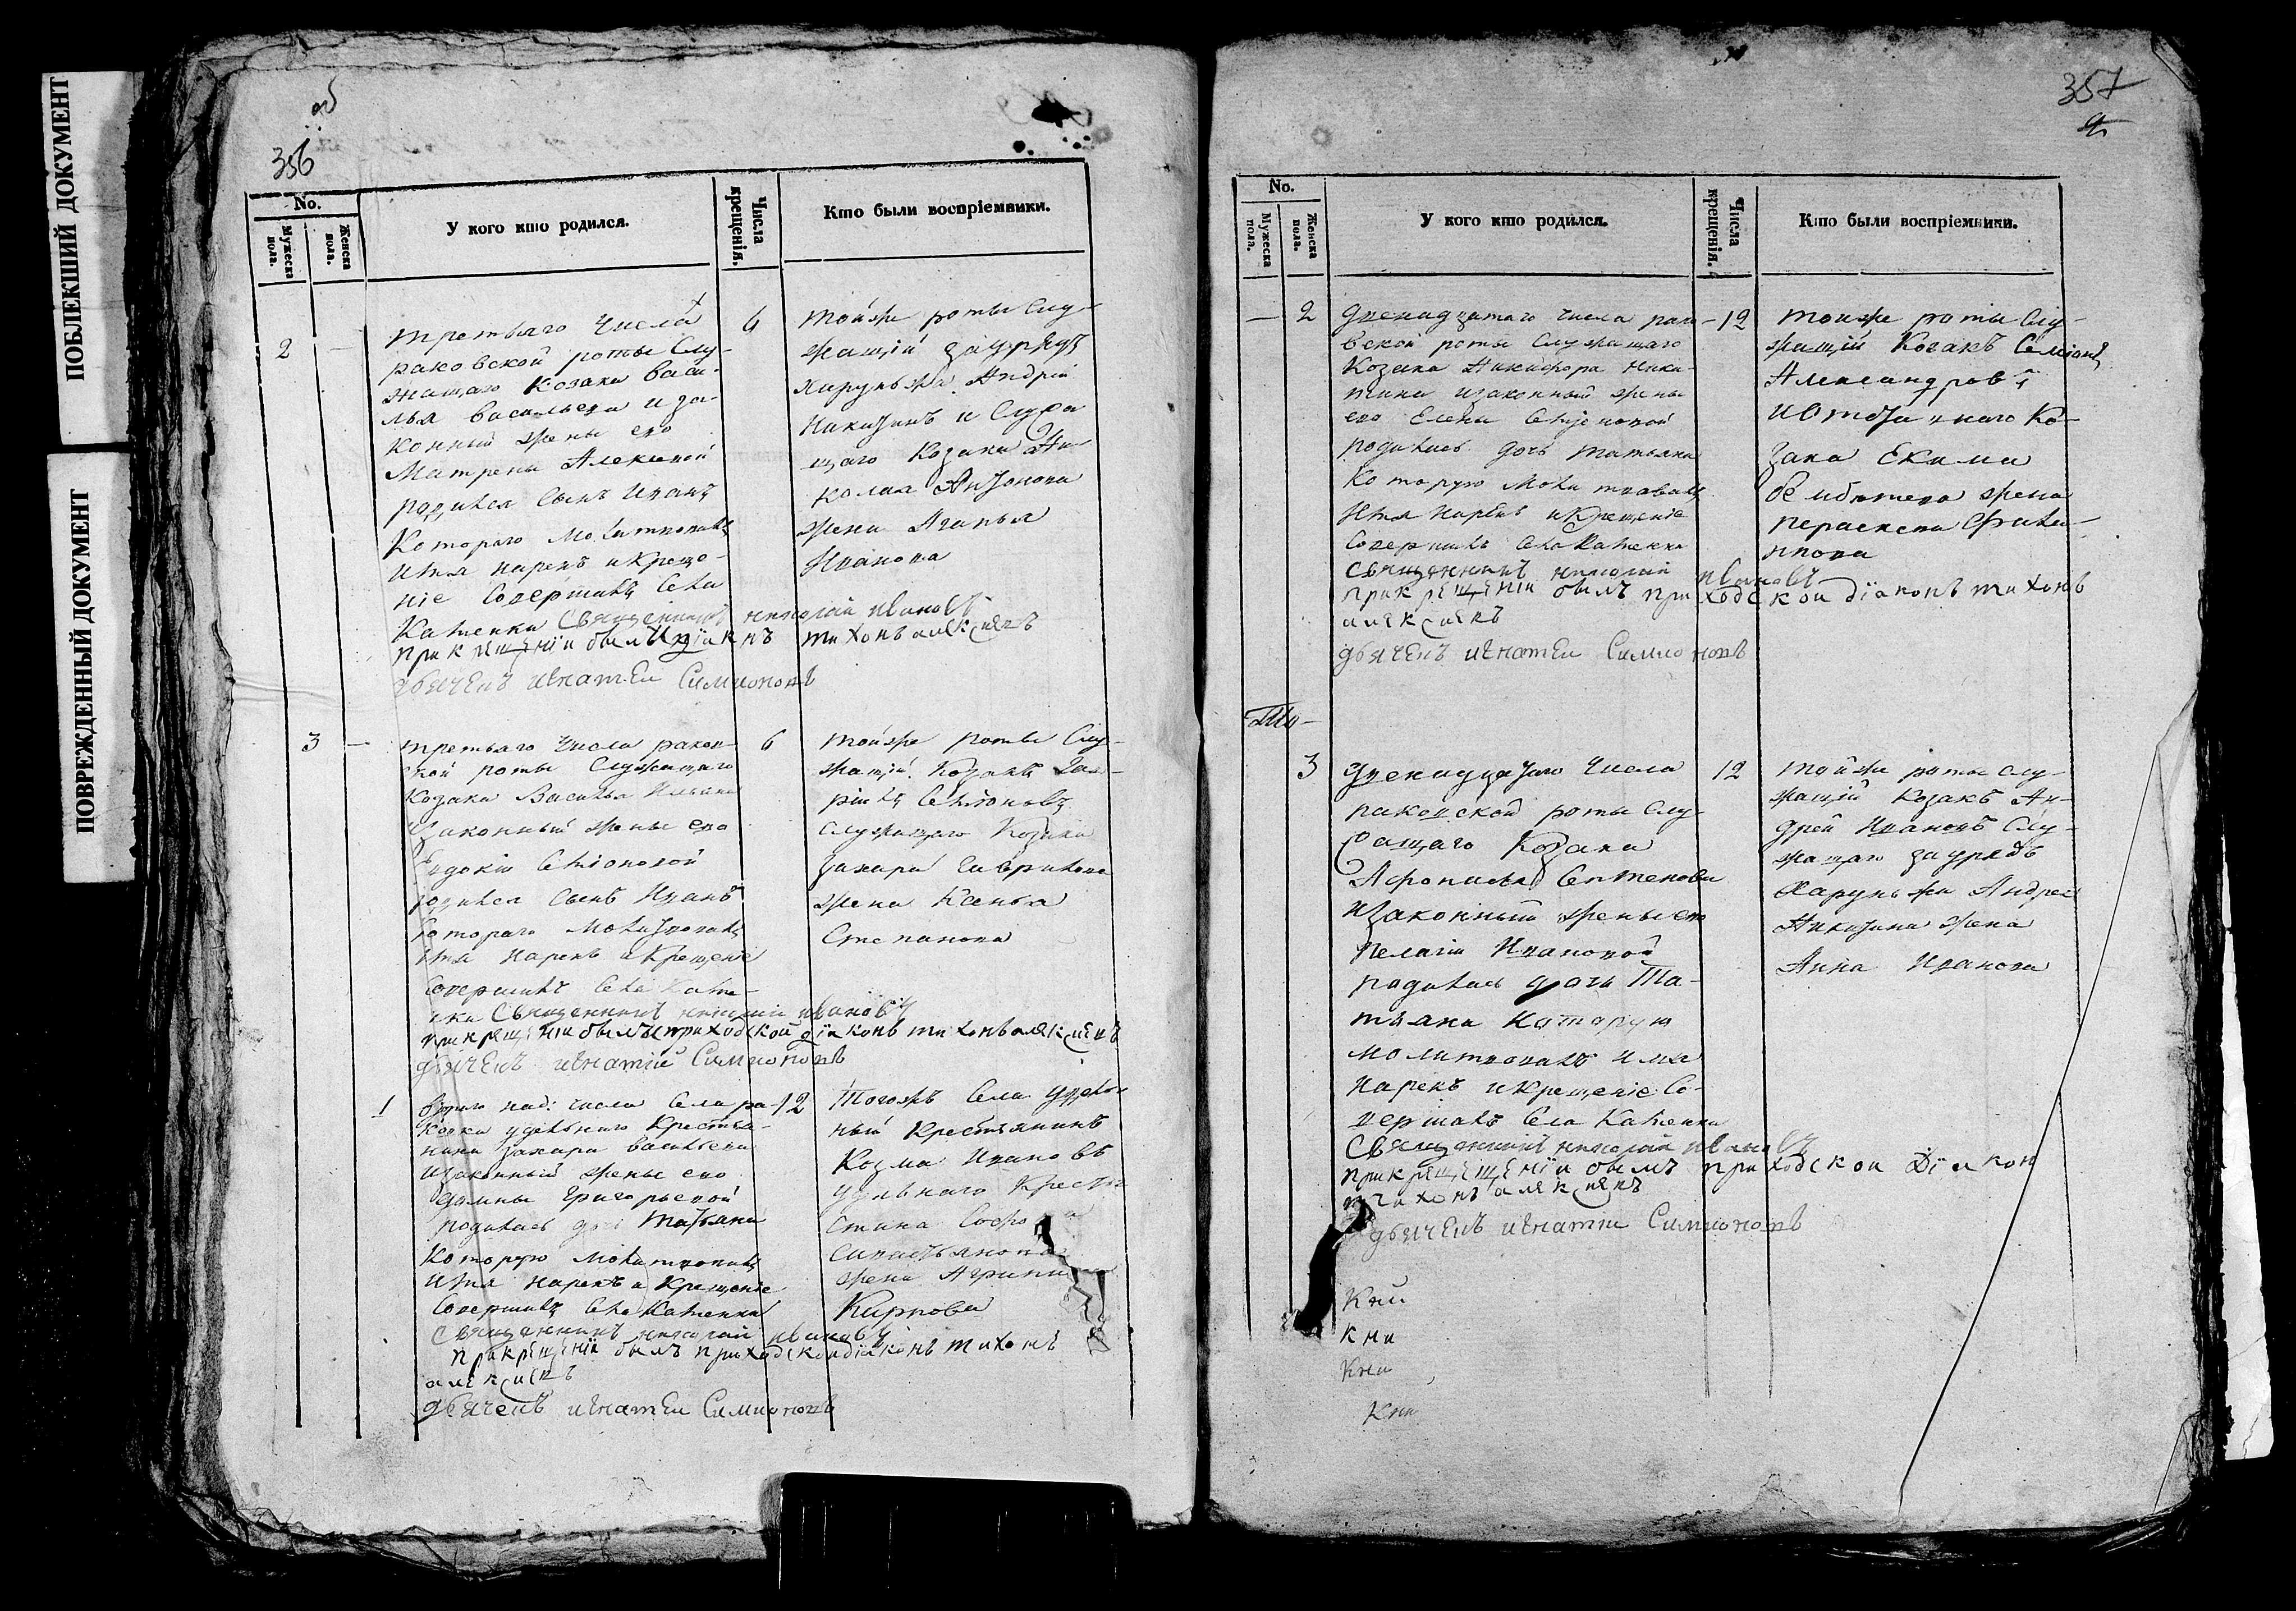 ПОБЛЕКШИЙ ДОКУМЕНТ
ПОВРЕЖДЕННЫЙ ДОКУМЕНТ
356
No.
Мужеска пола.
Женска пола.
У кого кто родился.
Числа крещенія.
Кто были воспріемники.
2 —
третьяго числа
раковской роты Слу-
жащаго Козака Васи-
лья Васильева и за-
конный жены его
Матрены
родился Сынъ Иванъ
Котораго Молитвовалъ
Имя нарекъ и Креще-
ніе Совершилъ Села
Каменки Священникъ николай ивановъ
при крещеніи былъ тихонъ
дьячекъ игнатеи Симионовъ
тойже роты Слу-
жащій зауряд
харунжа Андрей
Никитинъ и Служа
щаго Козака Ни-
колая Антонова
жена Агапья
Иванова
3 —
третьяго числа раков-
ской роты Служащаго
Козака Василья Ильина
изаконный жены его
Евдокіи Семіоновой
родился Сынъ Иванъ
Котораго Молитвовалъ
Имя Нарекъ и Крещеніе
Совершилъ Села Каме-
нки Священникъ николай ивановъ
при крещеніи былъ приходской діаконъ тихонъ
дьячекъ игнатій Симионовъ
6
тойже роты Слу-
жащій Козакъ
Семіоновъ
Служащаго Козака
Захара Гаврилова
жена Ксенья
Степанова
1
числа Села ра-
ковки удельнаго Крестья-
нина Захара Васильева
изаконный жены его
домны Григорьевой
родилась дочь Татьяна
Которую Молитвовалъ
Имя нарекъ и Крещеніе
Совершилъ Села Каменки
Священникъ николай ивановъ
при крещеніи былъ приходскои діаконъ тихонъ
дьячекъ игнатеи Симионовъ
12
Тогожъ Села удель-
ный Крестьянинъ
Козма Ивановъ
удельнаго Кресть
жена
Карпова
357
No.
Мужеска пола.
Женска пола.
У кого кто родился.
Числа крещенія.
Кто были воспріемники.
— 2
Двенадцатаго числа рако-
вской роты Служащаго
Козака Никифора Ники-
тина изаконный жены
его Елены Семіоновой
родилась дочь татьяна
Которую Молитвовалъ
Имя Нарекъ и Крещеніе
Совершилъ Села Каменки
Священникъ николай ивановъ
при крещеніи былъ приходскои діаконъ тихонъ
дьячекъ игнатеи Симионовъ
12
тойже роты Слу-
жащій Козакъ Семіонъ
Александровъ
Ко-
зака Екима
жена
пераскева Фили-
ппова
3
Двенадцатаго числа
раковской роты Слу-
жащаго Козака
изаконный жены его
Пелагіи Ивановой
родилась дочь Та-
тьяна Которую
молитвовалъ имя
Нарекъ и Крещеніе Со-
вершилъ Села Каменки
Священникъ николай ивановъ
при крещеніи былъ приходскои Діакон
тихонъ
дьячекъ игнатіи Симионовъ
12
тойже роты слу-
жащій Козакъ Ан-
дрей Ивановъ Слу-
жащаго зауряд
Харунжи Андрея
Никитина жена
Анна Иванова
Кни
Кни
Кни
Кни